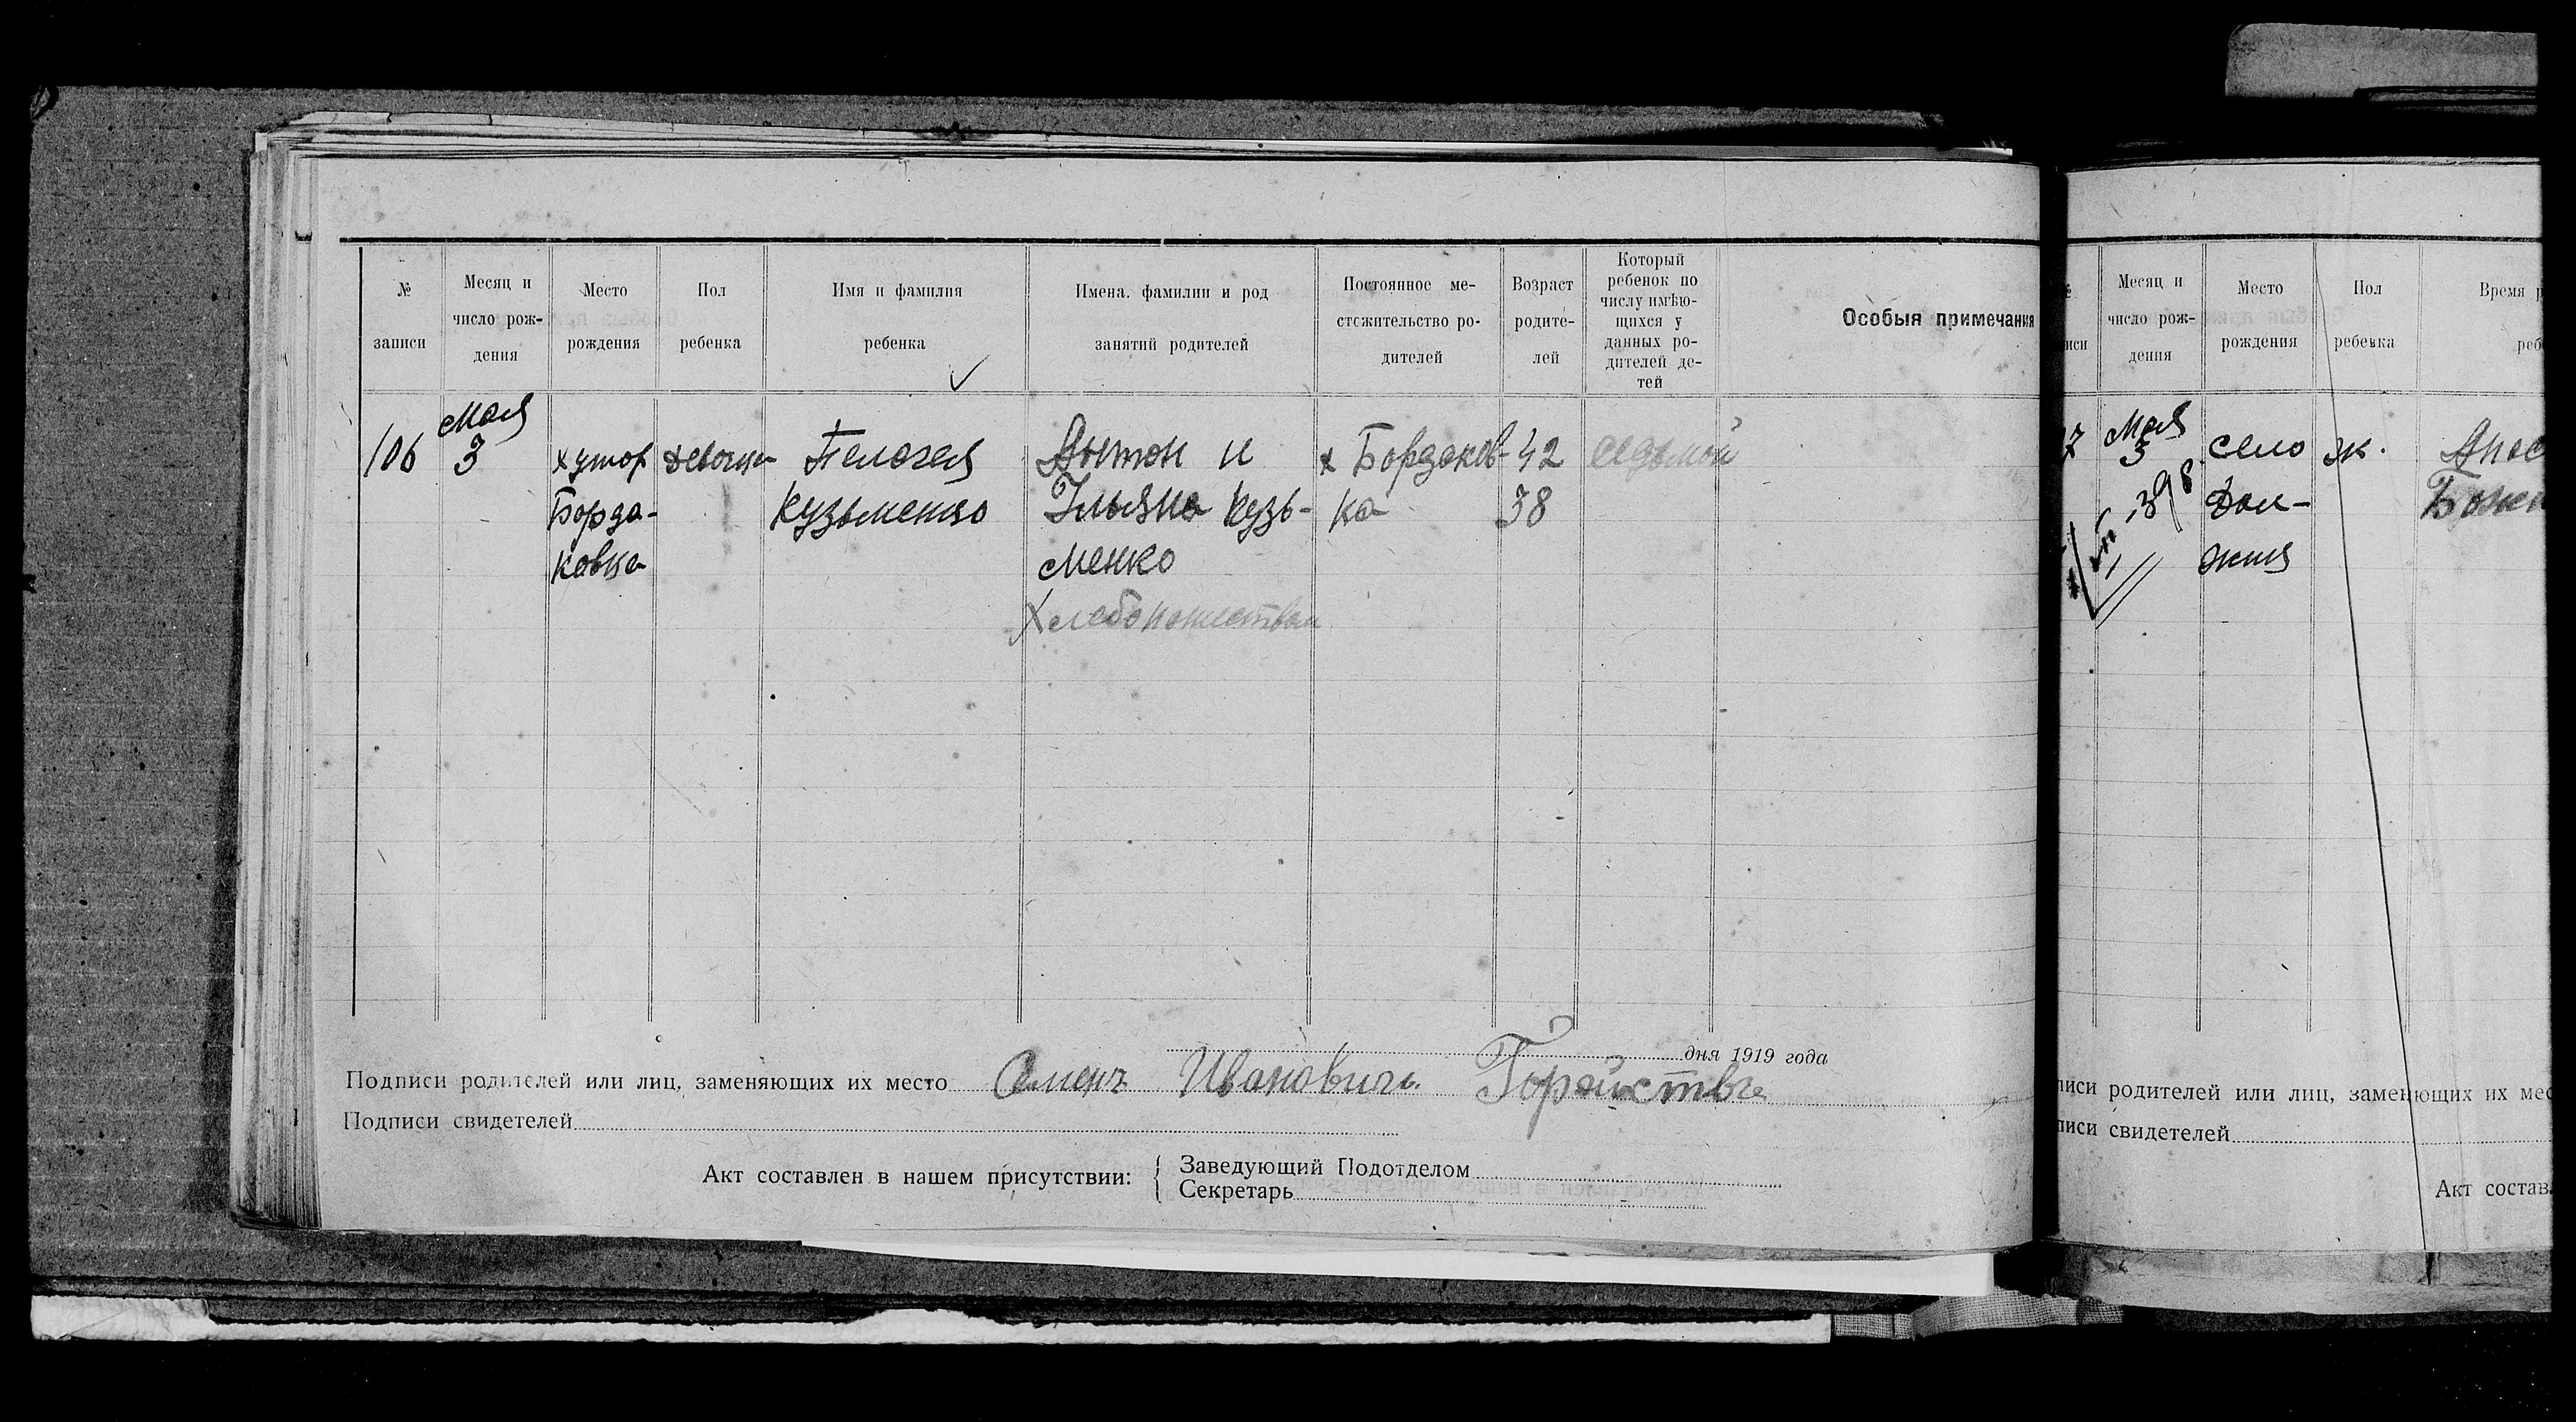 № записи
Месяц и число рож-дения
Место рождения
Пол ребенка
Имя и фамилия ребенка
Имена. фамилии и род занятий родителей
Постоянное ме-стожительство ро-дителей
Возраст родите-лей
Который ребенок по числу имѣю-щихся у данных ро-дителей де-тей
Особыя примечания
106
Мая 3
хутор
Борда-
ковка
девочка
Пелагея
Кузьменко
Антон и
Ульяна Кузь-
менко
Хлебопашеством
х Бордаков-
ка
42
38
седьмой
дня 1919 года
Подписи родителей или лиц, заменяющих их место Иванович
Подписи свидетелей
Акт составлен в нашем присутствии:
Заведующий Подотделом
Секретарь
иси
Месяц и число рож-дения
Место рождения
Пол ребенка
Время р
реб
7
Мая
3
село
Дол-
жия
ж.
398
писи родителей или лиц, заменяющих их мес
писи свидетелей
Акт состав